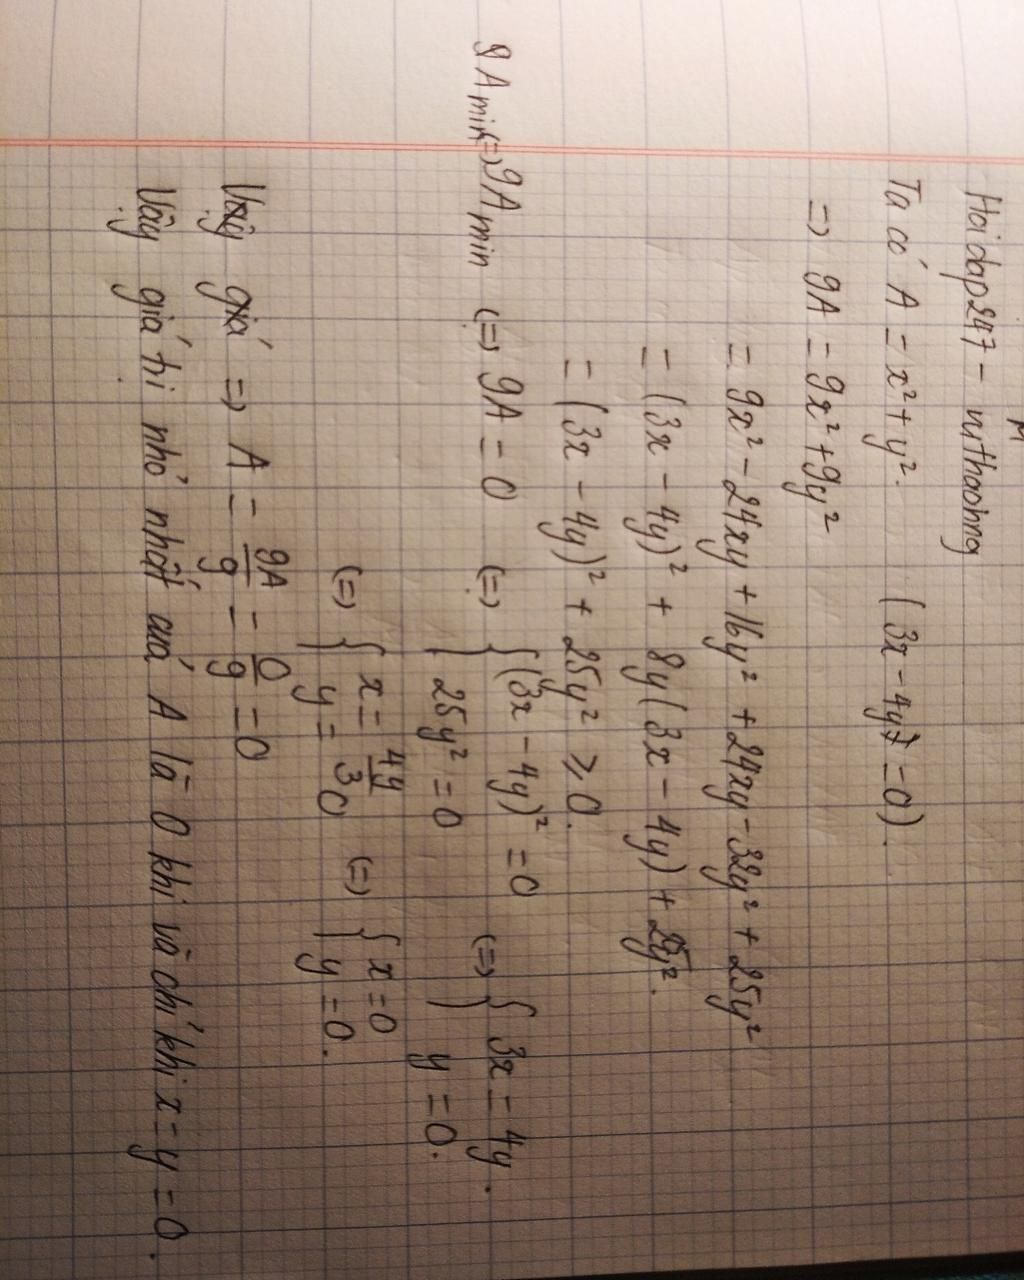 M
Hoidap247 - nuthaohng
Ta có A = x² + y². (3x - 4y = 0).
=> 9A = 9x² + 9y²
= 9x² - 24xy + 16y² + 24xy - 32y² + 25y²
= (3x - 4y)² + 8y(3x - 4y) + 25y².
= (3x - 4y)² + 25y² ≥ 0.
9A min (=> 9A min (=) 9A = 0 (=) { (3x - 4y)² = 0 (=) { 3x = 4y.
25y² = 0 y = 0.
(=) { x = 4y/3 (=) { x = 0
y = 0 y = 0.
=> A = 9A/9 = 0/9 = 0
Vậy giá tri nhỏ nhất củả A là 0 khi và chỉ khi x = y = 0.